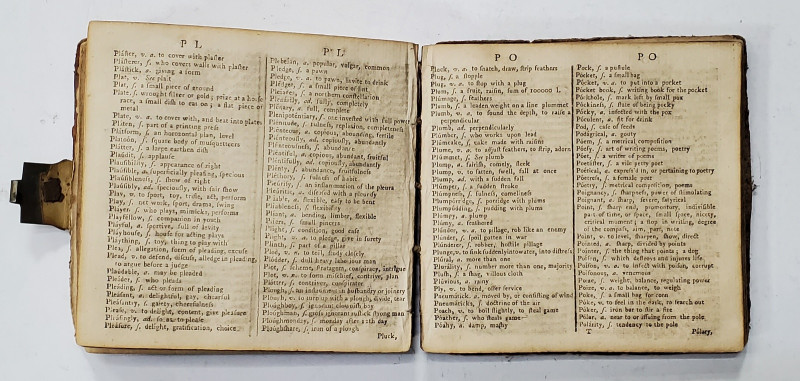 P L
Pláſter, v. a. to cover with plaſter
Pláſterer, ſ. who covers walls with plaſter
Pláſtick, a. giving a form
Plat, v. See plait
Plat, ſ. a ſmall piece of ground
Plate, ſ. wrought ſilver or gold; prize at a horſe
race, a ſmall diſh to eat on; a flat piece of
metal
Plate, v. a. to cover with, and beat into plates
Platen, ſ. part of a printing preſs
Plátform, ſ. an horizontal plan, level
Platoón, ſ. ſquare body of muſqueteers
Plátter, ſ. a large earthen diſh
Plaúdit, ſ. applauſe
Plauſibílity, ſ. appearance of right
Plaúſible, a. ſuperficially pleaſing, ſpecious
Plaúſibleneſs, ſ. ſhow of right
Plaúſibly, ad. ſpeciouſly, with fair ſhow
Play, v. to ſport, toy, trifle, act, perform
Play, ſ. not work, ſport, drama, ſwing
Pláyer, ſ. who plays, mimicks, performs
Pláyfellow, ſ. companion in youth
Pláyful, a. ſportive, full of levity
Pláyhouſe, ſ. houſe for acting plays
Pláything, ſ. toy, thing to play with
Plea, ſ. allegation, form of pleading, excuſe
Plead, v. to defend, diſcuſs, alledge in pleading,
to argue before a judge
Pleádable, a. may be pleaded
Pleáder, ſ. who pleads
Pleáding, ſ. act or form of pleading
Pleáſant, a. delightful, gay, chearful
Pleáſantry, ſ. gaiety, cheerfulneſs
Pleaſe, v. to delight, content, give pleaſure
Pleáſingly, ad. ſo as to pleaſe
Pleáſure, ſ. delight, gratification, choice
P L
Plebeían, a. popular, vulgar, common
Pledge, ſ. a pawn
Pledge, v. a. to pawn, invite to drink
Plédget, ſ. a ſmall piece of lint
Pleíades, ſ. a northern conſtellation
Plénarily, ad. fully, completely
Plénary, a. full, complete
Plenipoténtiary, ſ. one inveſted with full power
Plénitude, ſ. fulneſs, repletion, completeneſs
Plénteous, a. copious, abounding, fertile
Plénteouſly, ad. copiouſly, abundantly
Plénteouſneſs, ſ. abundance
Pléntiful, a. copious, abundant, fruitful
Pléntifully, ad. copiouſly, abundantly
Plénty, ſ. abundance, fruitfulneſs
Pléthora, ſ. fulneſs of habit
Pleúriſy, ſ. an inflammation of the pleura
Pleurítick, a. diſeaſed with a pleuriſy
Plíable, a. flexible, eaſy to be bent
Plíableneſs, ſ. flexibility
Plíant, a. bending, limber, flexible
Plíers, ſ. ſmall pincers
Plight, ſ. condition, good caſe
Plight, v. a. to pledge, give in ſurety
Plinth, ſ. part of a pillar
Plod, v. to toil, ſtudy cloſely
Plódder, ſ. dull heavy laborious man
Plot, ſ. ſcheme, ſtratagem, conſpiracy, intrigue
Plot, v. a. to form miſchief, contrive, plan
Plótter, ſ. contriver, conſpirator
Plough, ſ. an inſtrument in huſbandry or joinery
Plough, v. to turn up with a plough, divide, tear
Ploúghboy, ſ. ignorant clowniſh boy
Ploúghman, ſ. groſs ignorant ruſtick ſtrong man
Ploúghmonday, ſ. monday after 12th day
Ploúghſhare, ſ. iron of a plough
Pluck,
P O
Pluck, v. a. to ſnatch, draw, ſtrip feathers
Plug, ſ. a ſtopple
Plug, v. a. to ſtop with a plug
Plum, ſ. a fruit, raiſin, ſum of 100000 l.
Plúmage, ſ. feathers
Plumb, ſ. a leaden weight on a line, plummet
Plumb, v. a. to ſound the depth, to raiſe a
perpendicular
Plumb, ad. perpendicularly
Plúmber, ſ. who works upon lead
Plúmcake, ſ. cake made with raiſins
Plume, v. a. to adjuſt feathers, to ſtrip, adorn
Plúmmet, ſ. See plumb
Plump, a. fattiſh, comely, ſleek
Plump, v. to fatten, ſwell, fall at once
Plump, ad. with a ſudden fall
Plúmper, ſ. a ſudden ſtroke
Plúmpneſs, ſ. fulneſs, comelineſs
Plumpórridge, ſ. porridge with plums
Plumpúdding, ſ. pudding with plums
Plúmpy, a. plump
Plúmy, a. feathered
Plúnder, v. a. to pillage, rob like an enemy
Plúnder, ſ. ſpoil gotten in war
Plúnderer, ſ. robber, hoſtile pillager
Plunge, v. to ſink ſuddenly into water, into diſtreſs
Plúral, a. more than one
Plurálity, ſ. number more than one, majority
Pluſh, ſ. a ſhag, villous cloth
Plúvious, a. rainy
Ply, v. to bend, offer ſervice
Pneumátick, a. moved by, or conſiſting of wind
Pneumáticks, ſ. doctrine of the air
Poach, v. to boil ſlightly, to ſteal game
Poácher, ſ. who ſteals game
Poáchy, a. damp, marſhy
P O
Pock, ſ. a puſtule
Pócket, ſ. a ſmall bag
Pócket, v. a. to put into a pocket
Pócket book, ſ. writing book for the pocket
Póckhole, ſ. mark left by ſmall pox
Póckineſs, ſ. ſtate of being pocky
Pócky, a. infected with the pox
Póculent, a. fit for drink
Pod, ſ. caſe of ſeeds
Podágrical, a. gouty
Póem, ſ. a metrical compoſition
Póeſy, ſ. art of writing poems, poetry
Póet, ſ. a writer of poems
Poetáſter, ſ. a vile petty poet
Poétical, a. expreſs'd in, or pertaining to poetry
Póetreſs, ſ. a female poet
Póetry, ſ. metrical compoſition, poems
Poígnancy, ſ. ſharpneſs, power of ſtimulating
Poígnant, a. ſharp, ſevere, ſatyrical
Point, ſ. ſharp end, promontory, indiviſible
part of time, or ſpace, ſmall ſpace, nicety,
critical moment; a ſtop in writing, degree
of the compaſs, aim, part, note
Point, v. to level, ſharpen, ſhow, direct
Poínted, a. ſharp, divided by points
Poínter, ſ. the thing that points; a dog
Poíſon, ſ. which deſtroys and injures life
Poíſon, v. a. to infect with poiſon, corrupt
Poíſonous, a. venemous
Poiſe, ſ. weight, balance, regulating power
Poiſe, v. a. to balance, to weigh
Poke, ſ. a ſmall bag for corn
Poke, v. to feel in the dark, to ſearch out
Póker, ſ. iron bar to ſtir a fire
Pólar, a. near to or iſſuing from the pole
Polárity, ſ. tendency to the pole
T
Pólary,